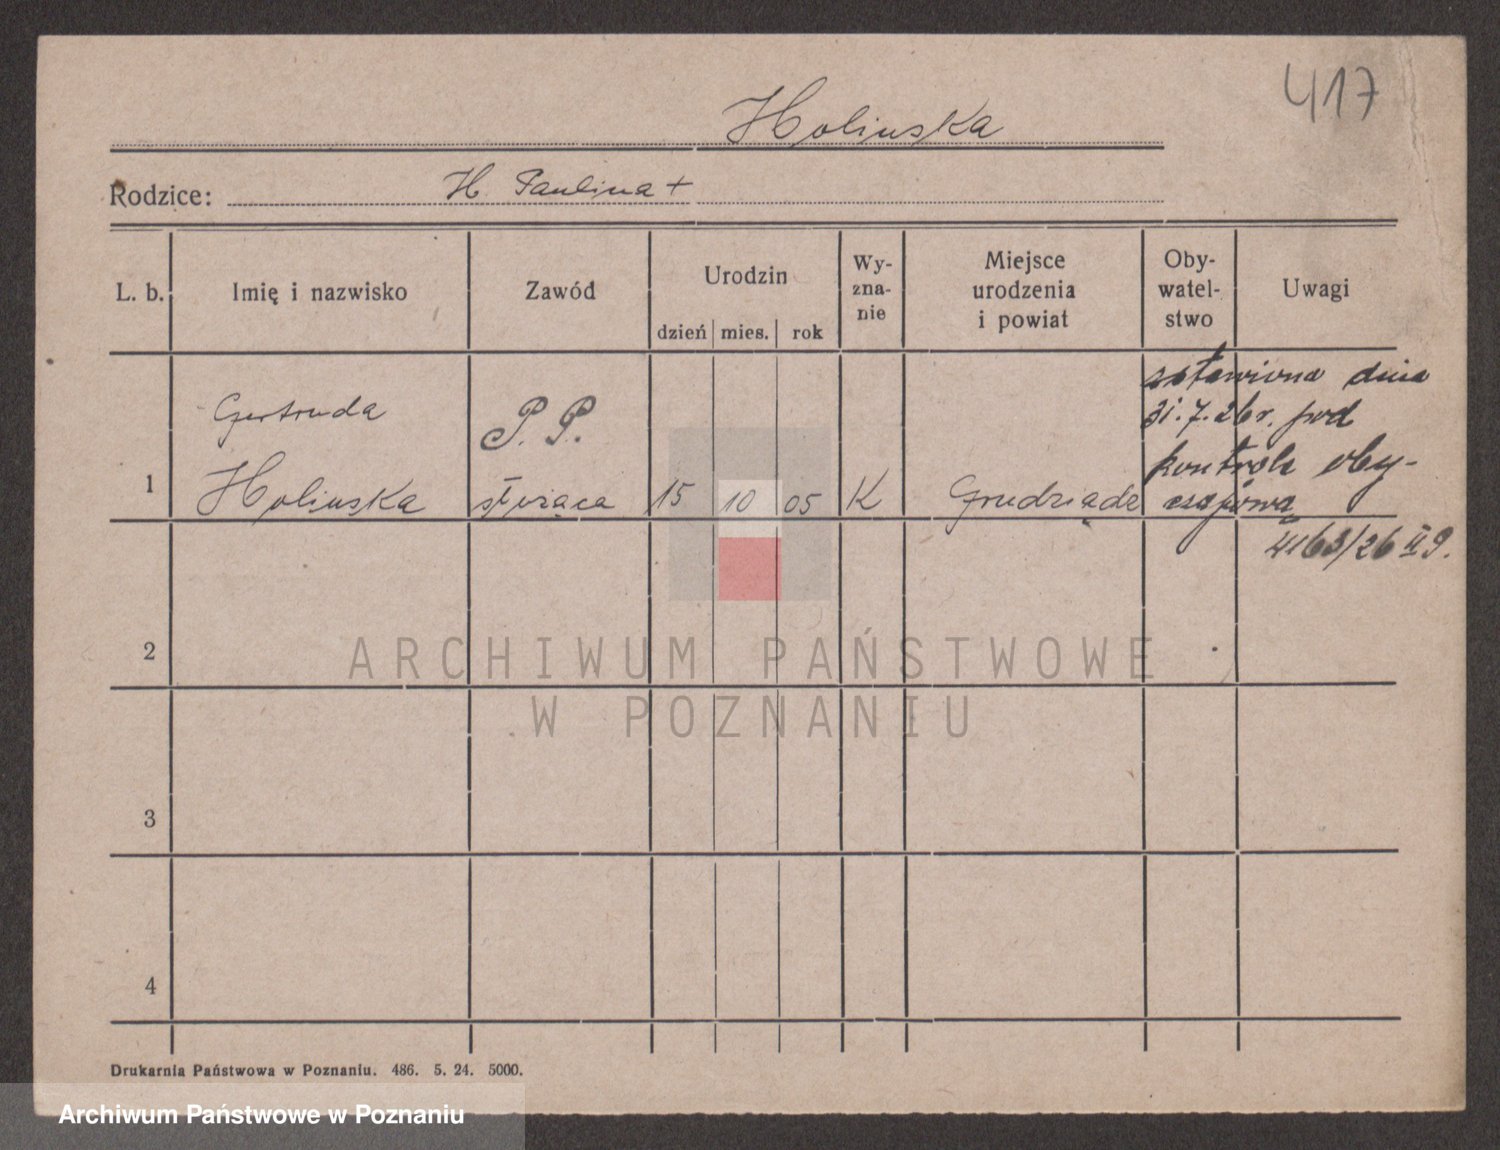 417
Holinska
Rodzice: H. Paulina +
L. b.
Imię i nazwisko
Zawód
Urodzin
dzień mies. rok
Wy-
zna-
nie
Miejsce
urodzenia
i powiat
Oby-
watel-
stwo
Uwagi
1
Gertruda
Holinska
P. P.
służąca
15 10 05
K
Grudziądz
stawiona dnia
31.7.26r. pod
kontrolę oby-
czajową
4163/26 II 9.
2
3
4
ARCHIWUM PAŃSTWOWE
W POZNANIU
Drukarnia Państwowa w Poznaniu. 486. 5. 24. 5000.
Archiwum Państwowe w Poznaniu